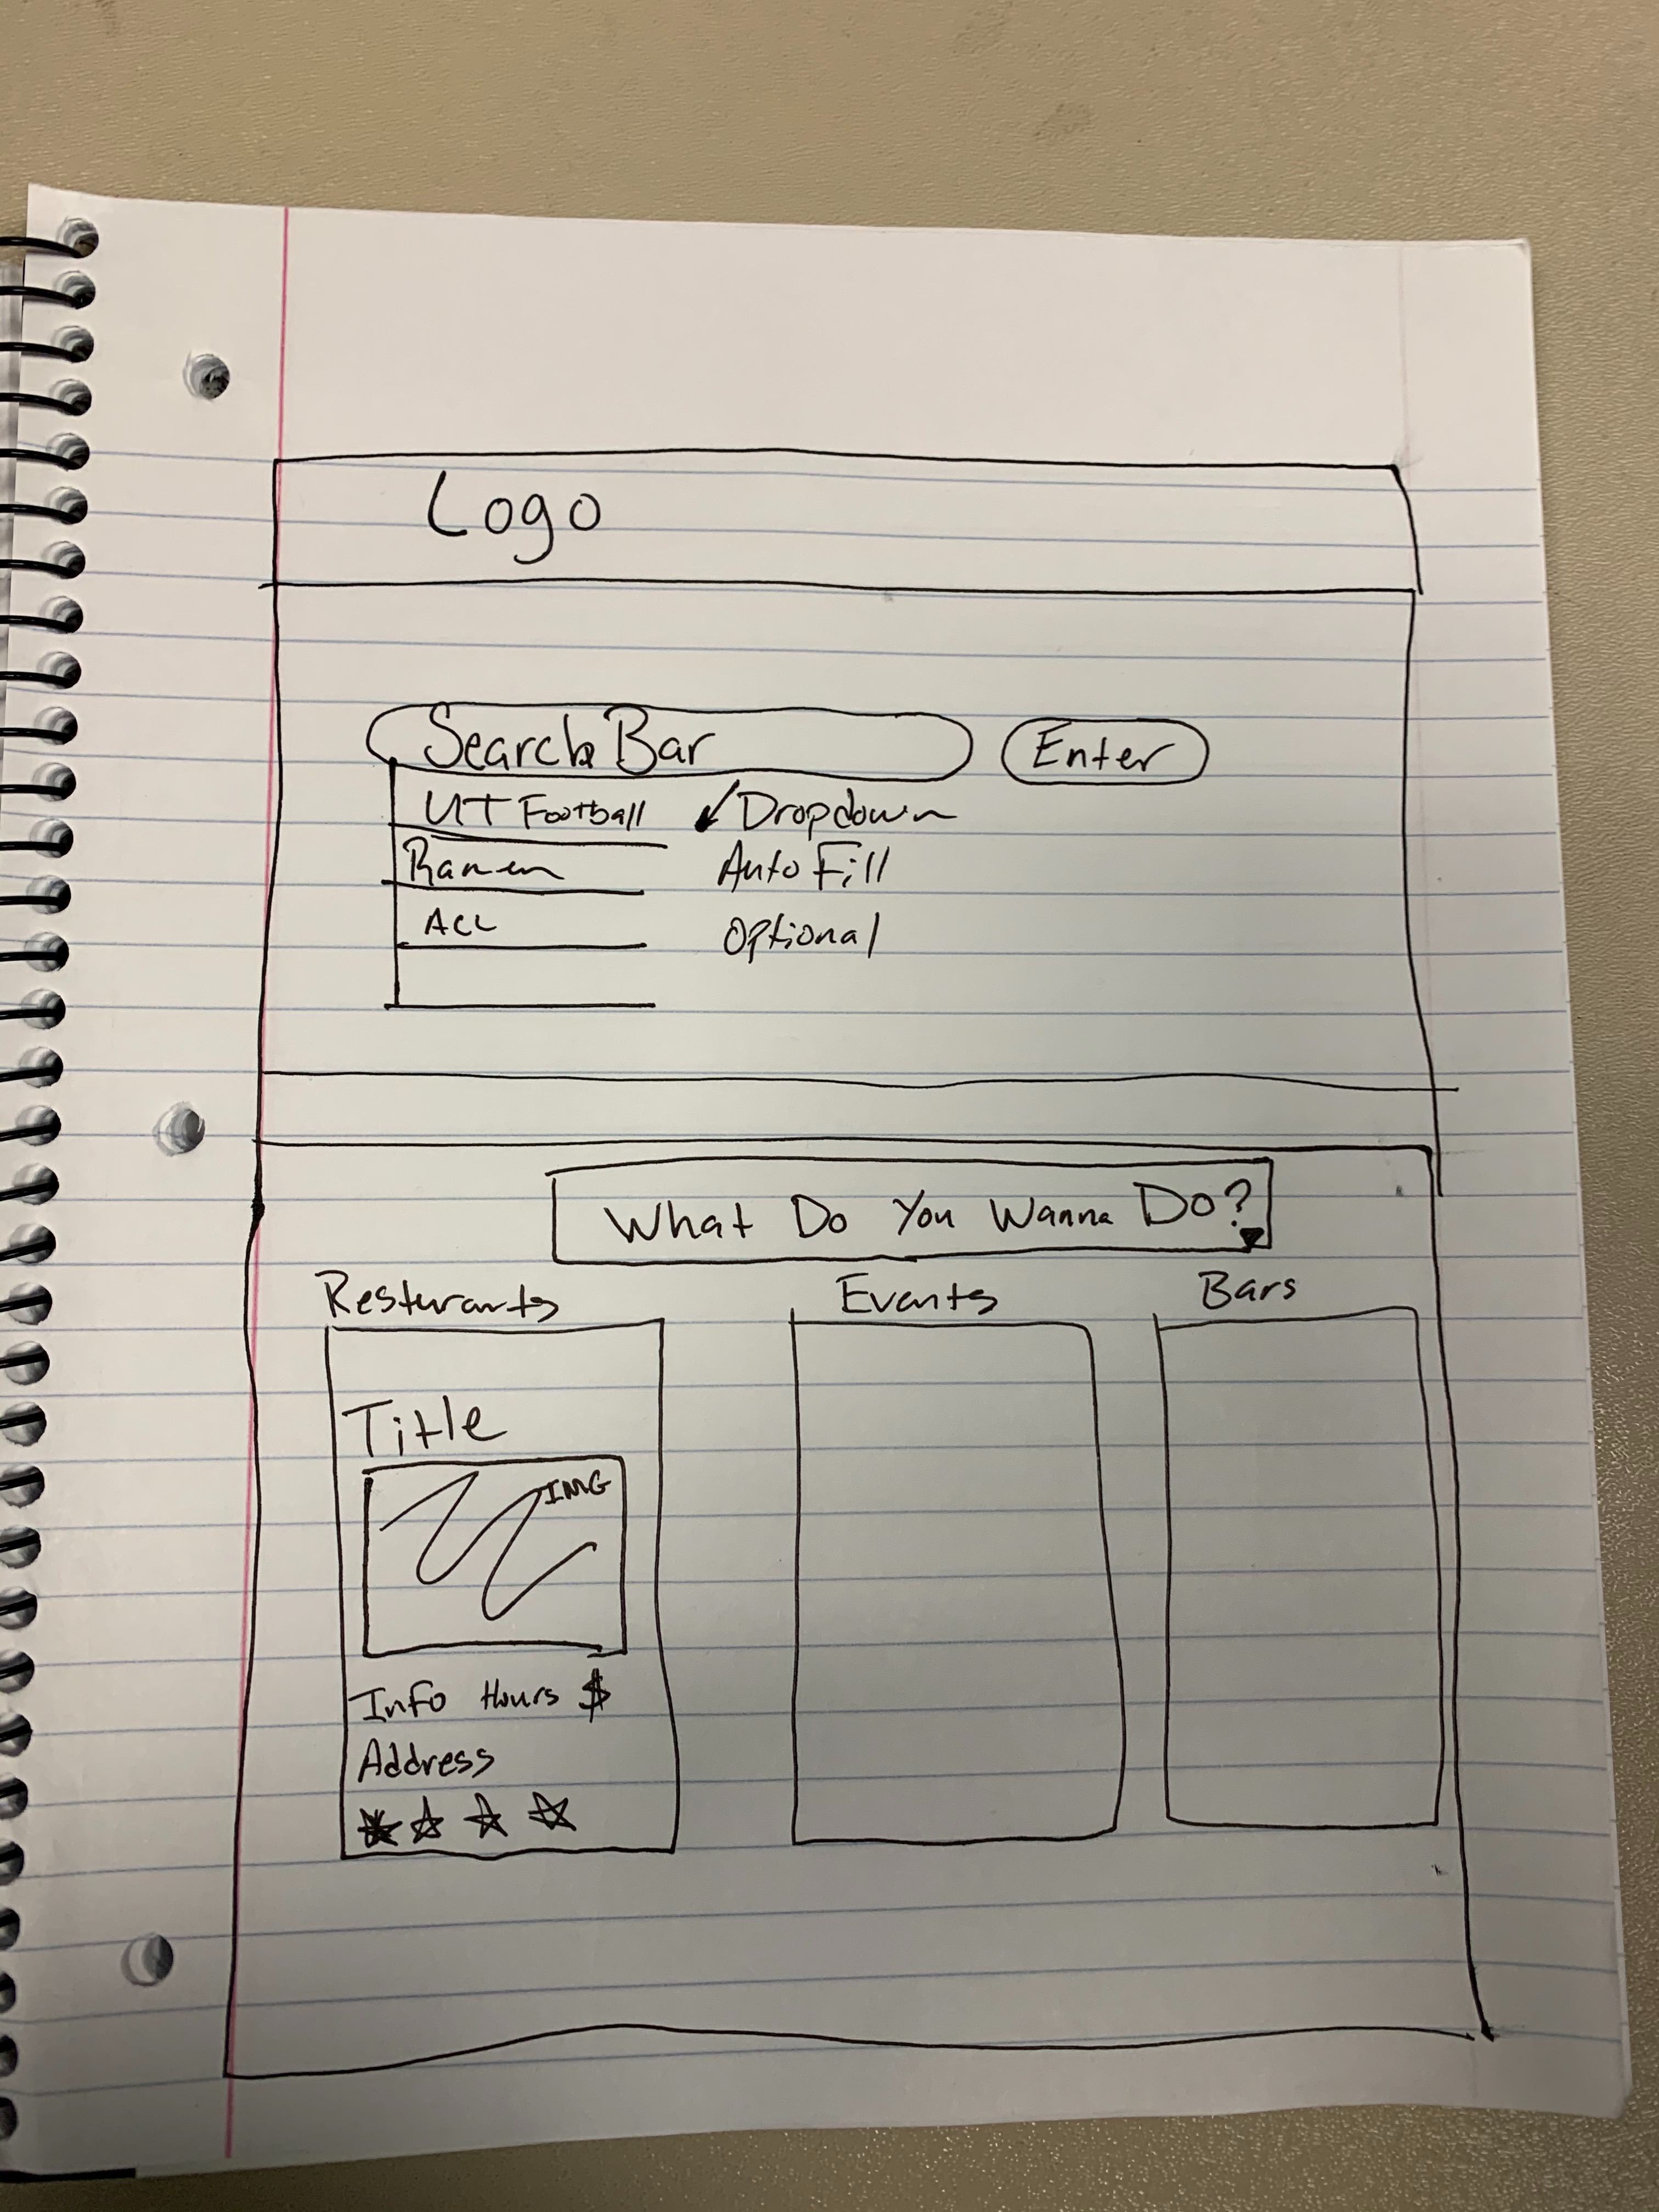 Logo
Search Bar
Enter
UT Football
Dropdown
Ramen
Auto Fill
ACL
Optional
What Do You Wanna Do?
Resturants
Events
Bars
Title
IMG
Info Hours $
Address